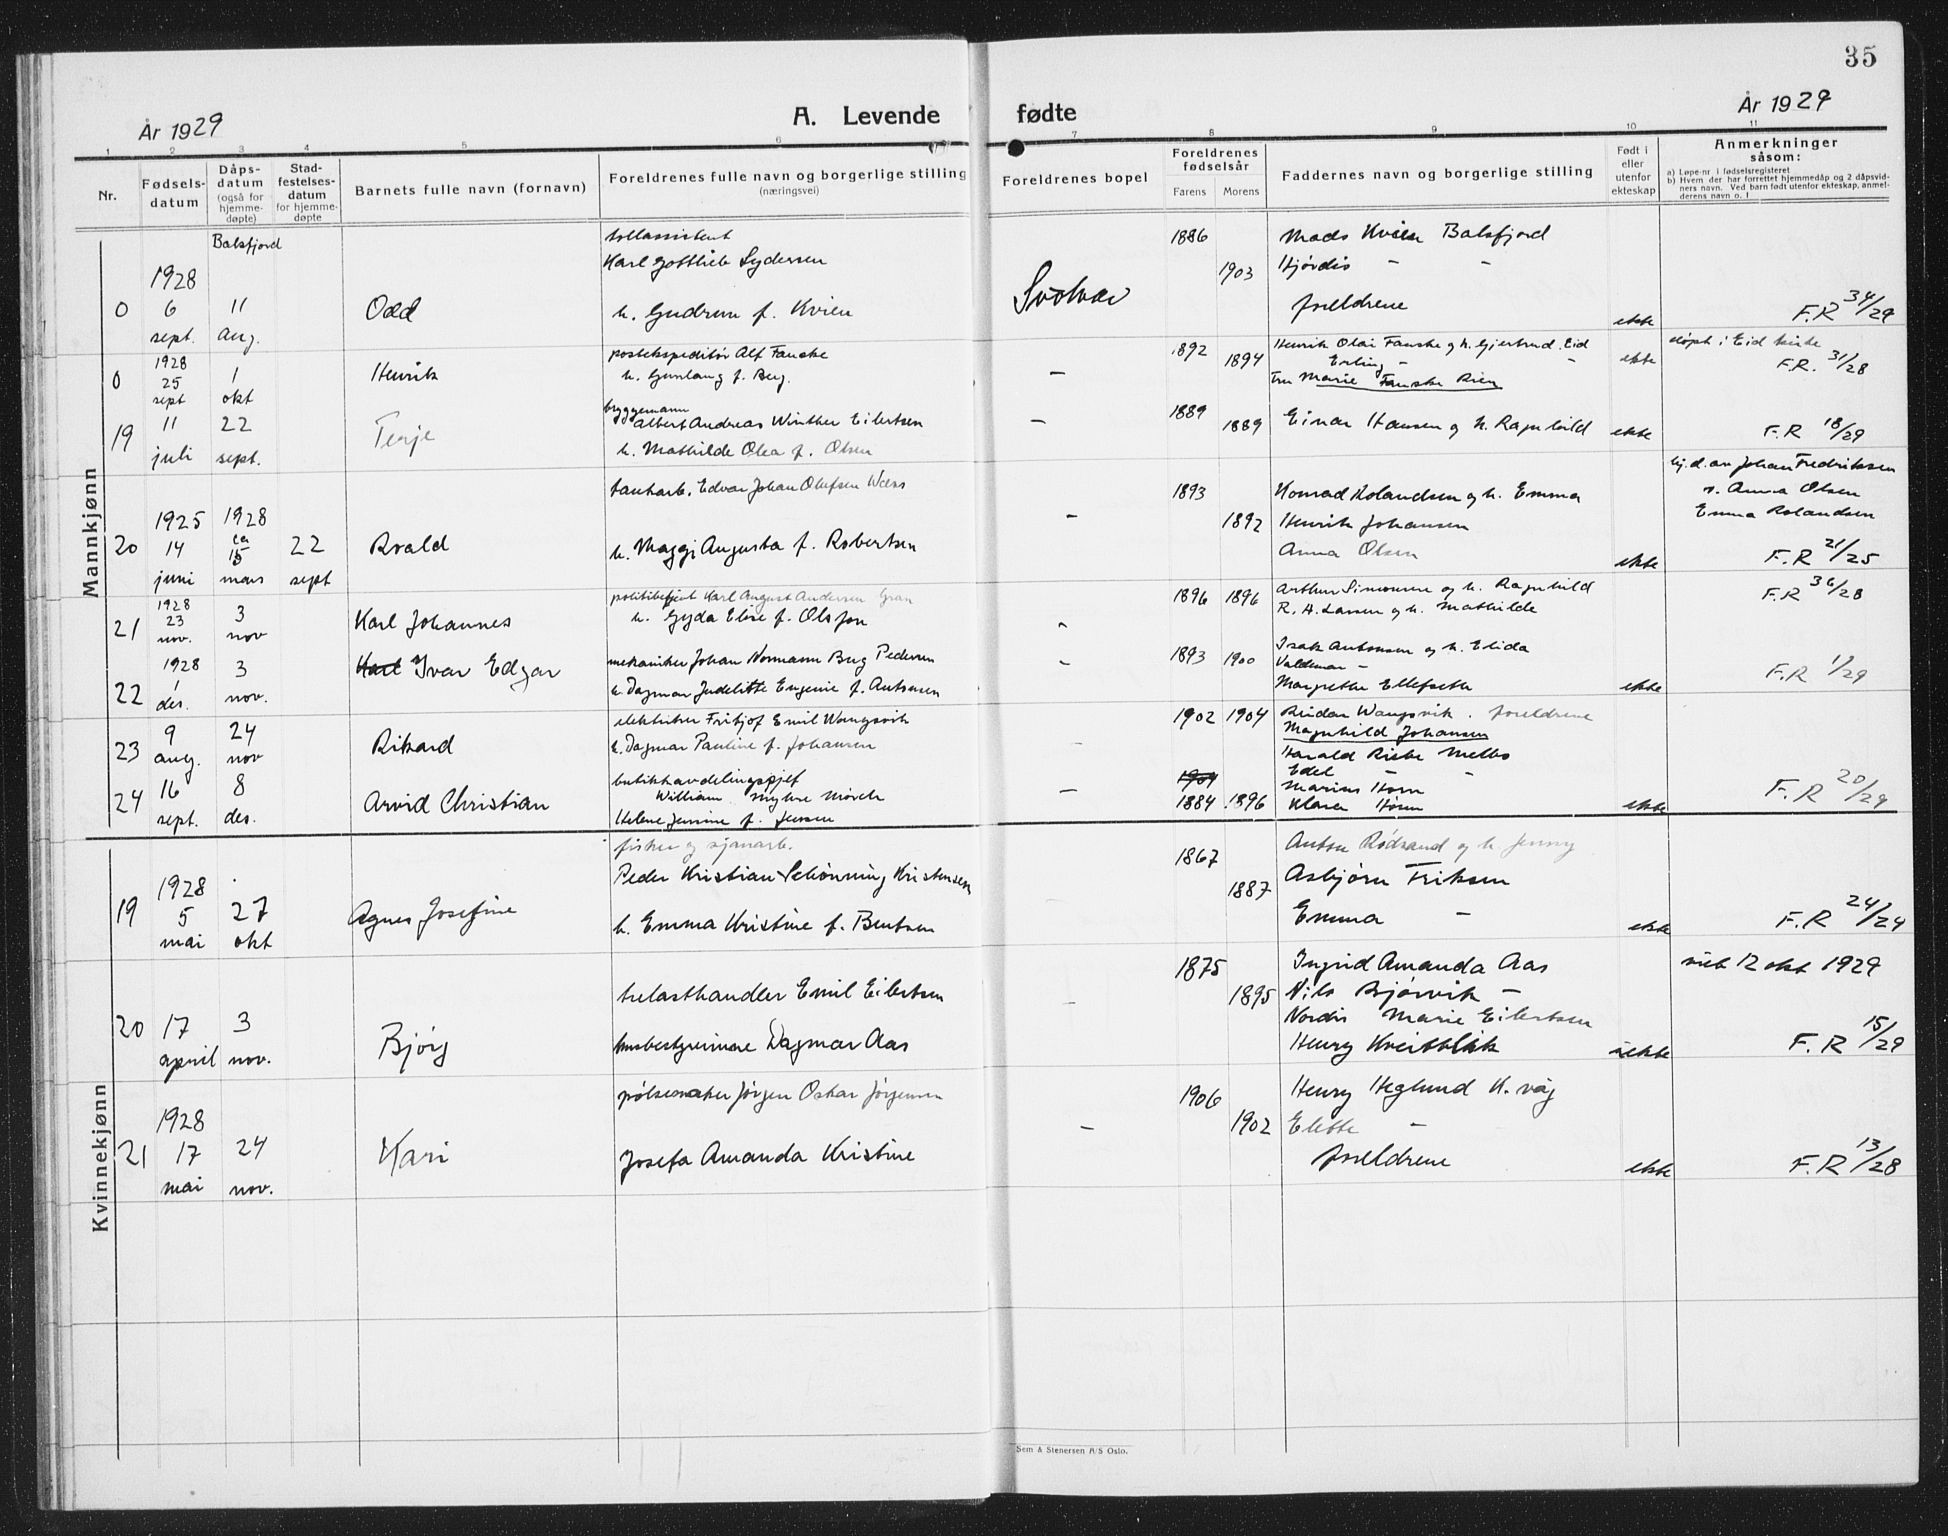 35
År 1929
A. Levende
fødte
År 1929
1 2 3 4 5 6 7 8 9 10 11
Nr.
Fødsels-
datum
Dåps-
datum
(også for
hjemme-
døpte)
Stad-
festelses-
datum
for hjemme-
døpte
Barnets fulle navn (fornavn)
Foreldrenes fulle navn og borgerlige stilling
(næringsvei)
Foreldrenes bopel
Foreldrenes
fødselsår
Farens Morens
Faddernes navn og borgerlige stilling
Født i
eller
utenfor
ekteskap
Anmerkninger
såsom:
a) Løpe-nr i fødselsregisteret
b) Hvem der har forrettet hjemmedåp og 2 dåpsvid-
ners navn. Ved barn født utenfor ekteskap, anmel-
derens navn o. l
Mannkjønn
Balsfjord
tollassistent
1886
Mads Kvien Balsfjord
1928
Karl Gottlieb Sydersen
1903
Hjørdis - -
0 6 11 Odd
h. Gudrun f. Kvien
Svolvær
foreldrene
sept. aug.
ekte
F.R 34/29
1928
postekspeditør Alf Fanske
1892
Henrik Olai Fanske og h. Gjertrud. Eid
døpt i Eid kirke
0 25 1 Henrik
h. Gunlaug f. Berg.
-
1894
Erling - -
ekte
F.R. 31/28
sept okt
Fru Marie Fanske Rien
19 11 22 Terje
byggemann
Albert Andreas Winther Eilertsen
-
1889
1889
Einar Hansen og h. Ragnhild
ekte
F.R 18/29
juli sept.
h. Mathilde Olea f. Olsen
tankarb. Edvar Johan Olufsen Wæss
1893
Konrad Rolandsen og h. Emma
hj.d. av Johan Fredriksen
v. Anna Olsen
1925 1928
-
1892
Henrik Johansen
Emma Rolandsen
20 14 ca 15 22 Roald
h. Maggi Augusta f. Robertsen
Anna Olsen
juni mars sept
ekte
F.R 21/25
1928
politibetjent Karl August Andersen Gran
1896 1896
Arthur Simonsen og h. Ragnhild
F.R 36/28
21 23 3 Karl Johannes
h. Gyda Elise f. Olsson
R. A. Larsen og h. Mathilde
nov. nov
1928 3 Karl Ivar Edgar
mekaniker Johan Normann Berg Pedersen
-
1893 1900
Isak Antonsen og h. Elida
Valdemar -
22 1 des. nov.
h. Dagmar Judelitte Eugenie f. Antonsen
Margrethe Ellefseth
ekte
F.R 1/29
23 9 24 Rikard
elektriker Fritjof Emil Wangsvik
1902 1904
Reidar Wangsvik. foreldrene
aug. nov
h. Dagmar Pauline f. Johansen
-
Magnhild Johansen
24 16 8 Arvid Christian
butikkavdelingssjef
William Myhre Mørch
-
1904
1884 1896
Harald Riebe Melbo
Edel - -
Marius Horn
Klara Horn
sept. des.
Helene Jensine f. Jensen
ekte
F.R 20/29
Kvinnekjønn
fisker og sjauarb.
1867
Anton Rødsand og h. Jenny
1928
Peder Kristian Schønning Kristensen
1887
Asbjørn Eriksen
19 5 27 Agnes Josefine
h. Emma Kristine f. Bentsen
Emma -
mai okt
ekte
F.R 24/24
1875
Ingrid Amanda Aas
viet 12 okt 1929
trelasthandler Emil Eilertsen
-
1895
Nils Bjørvik -
20 17 3 Bjørg
Nordis Marie Eilertsen
april nov.
husbestyrerinne Dagmar Aas
Henry Kveitblik
uekte
F.R 15/29
pølsemaker Jørgen Oskar Jørgensen
1906
Henry Heglund K. våg
1928
-
1902
Elette -
21 17 24 Kari
Josefa Amanda Kristine
foreldrene
mai nov.
ekte
F.R 13/28
Sem & Stenersen A/S Oslo.